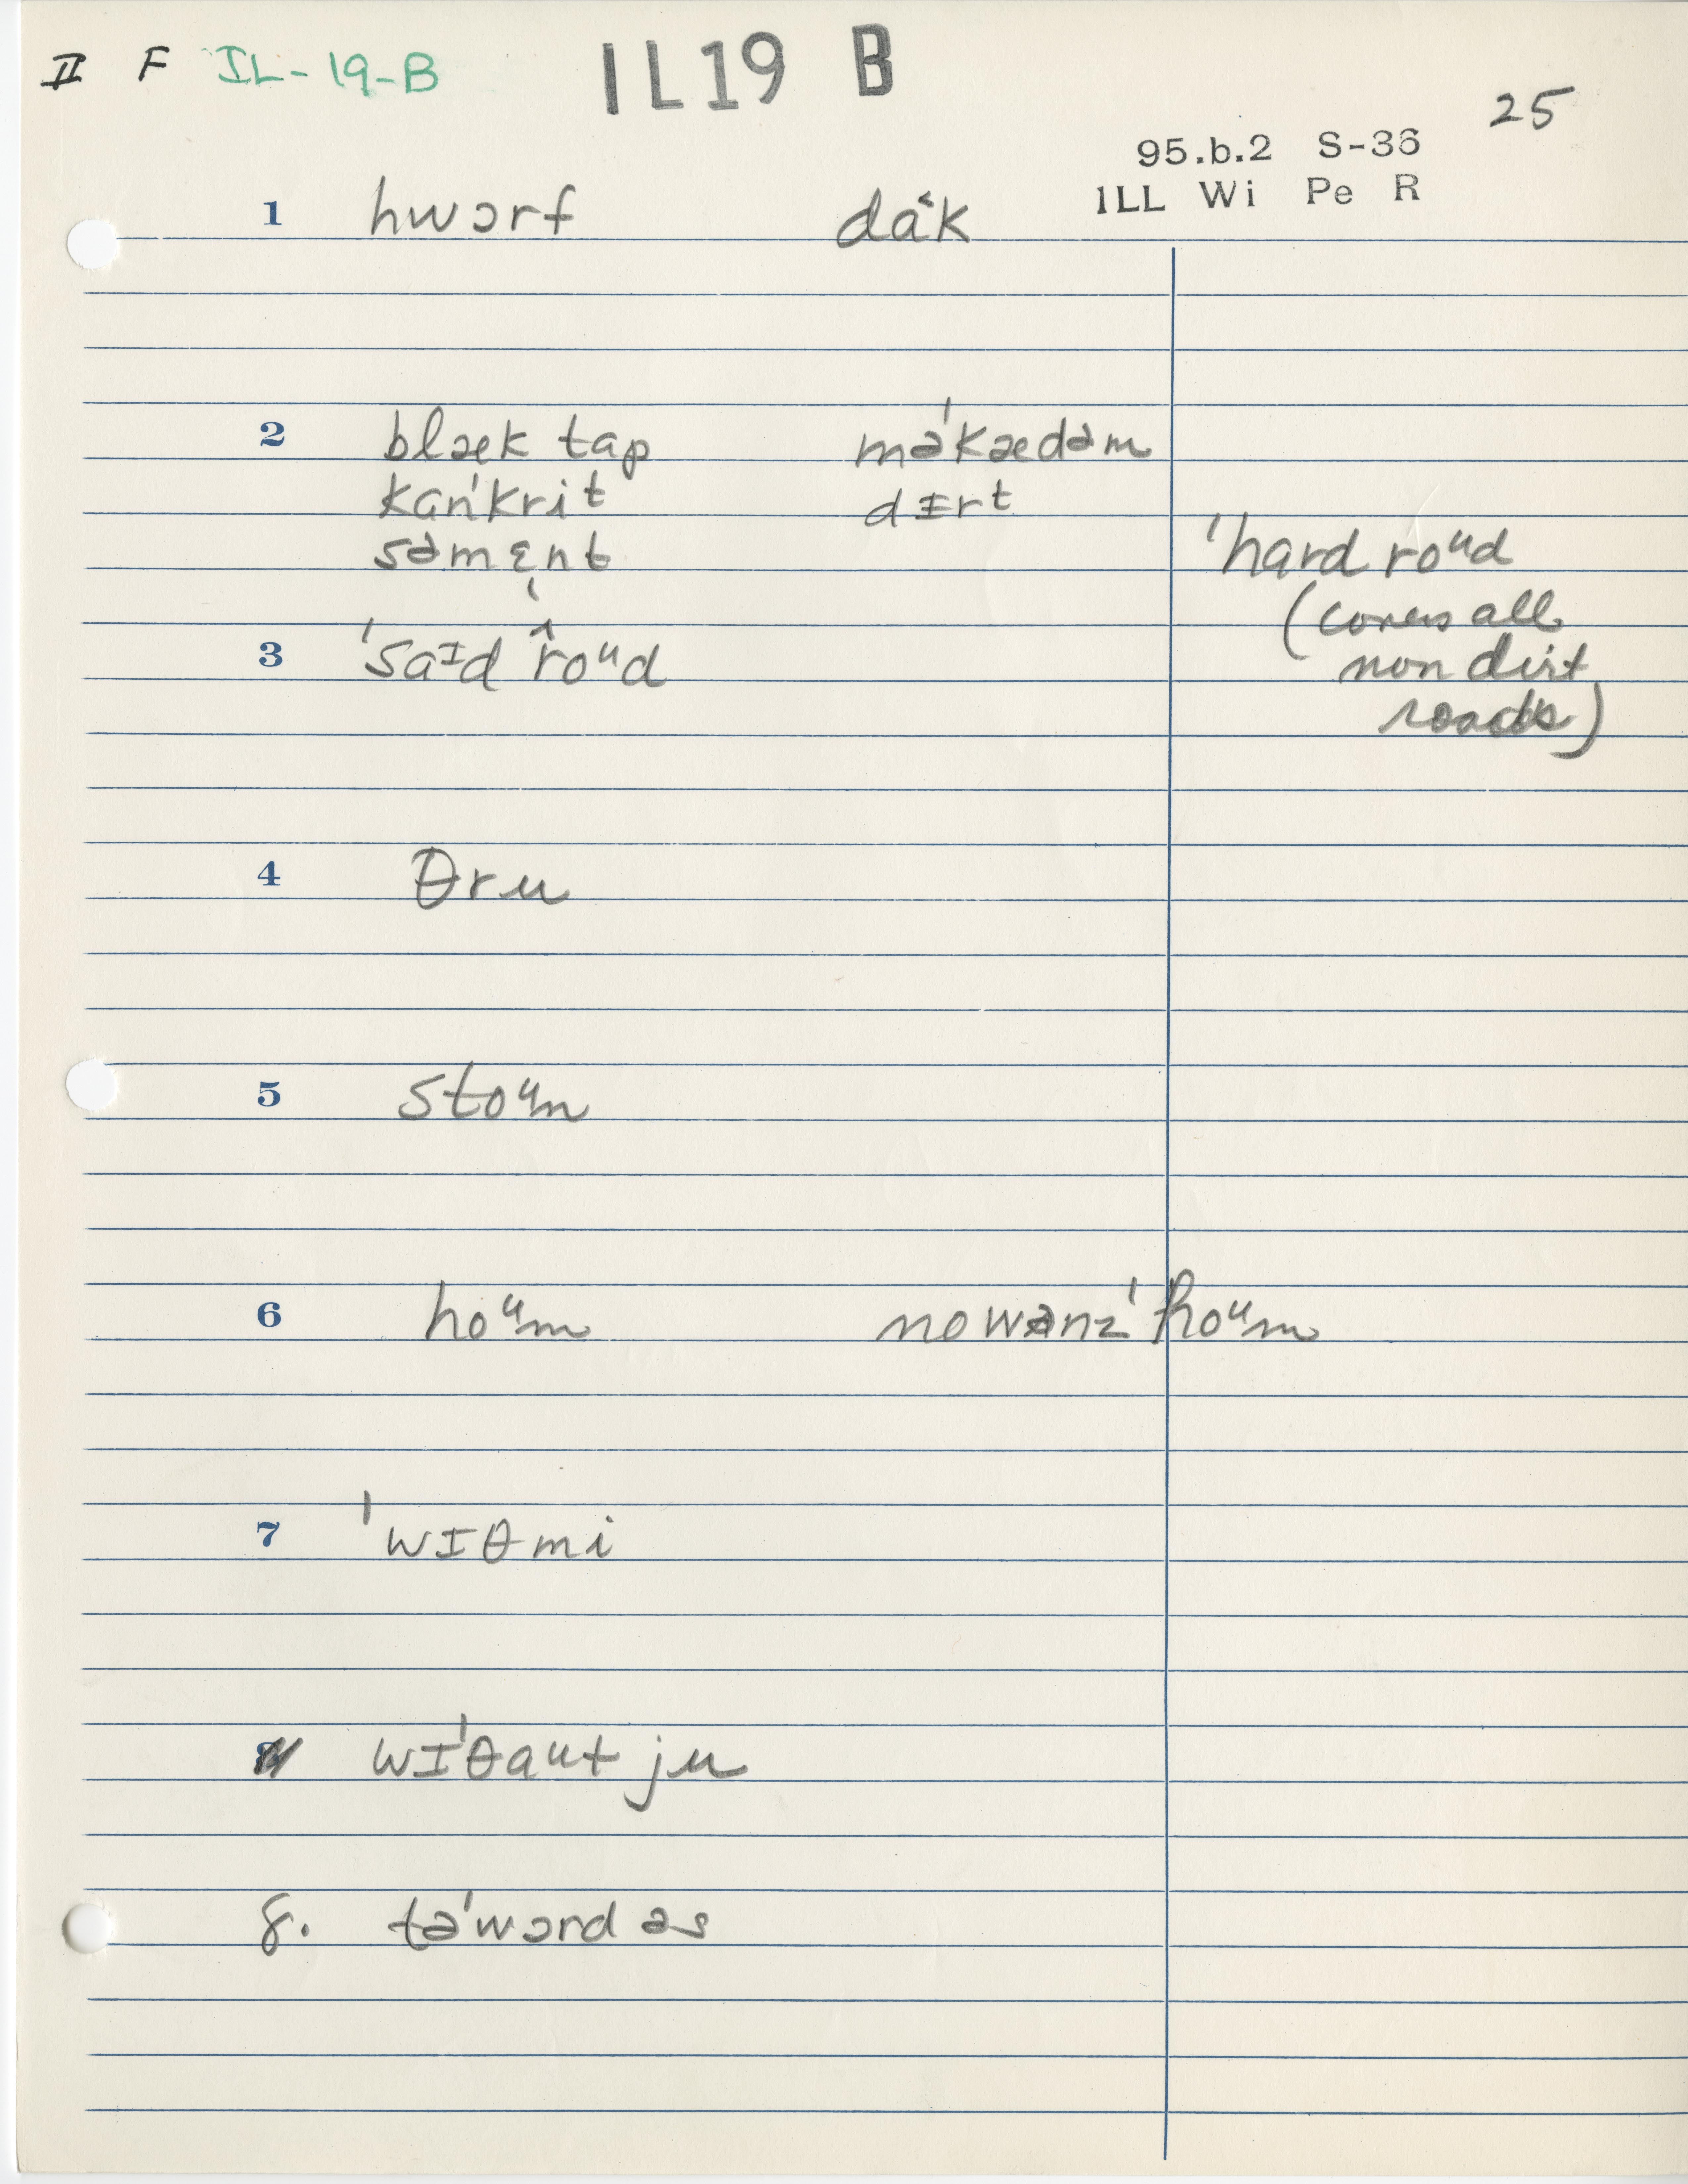 II F IL-19-B IL19 B
25
95.b.2 S-36
ILL Wi Pe R
1 hwɔrf dɑ˂k
2 blæk tɑp məˈkædəm
kɑnˈkrit dɪrt
səmɛnt
ˈhard roᵘd
(covers all
3 ˈsaɪd ^roᵘd
non dirt
roads)
4 θru
5 stoᵘn
6 hoᵘm nowənz ˈhoᵘm
7 ˈwɪθmi
wɪˈθaut ju
8. təˈwɔrd əs